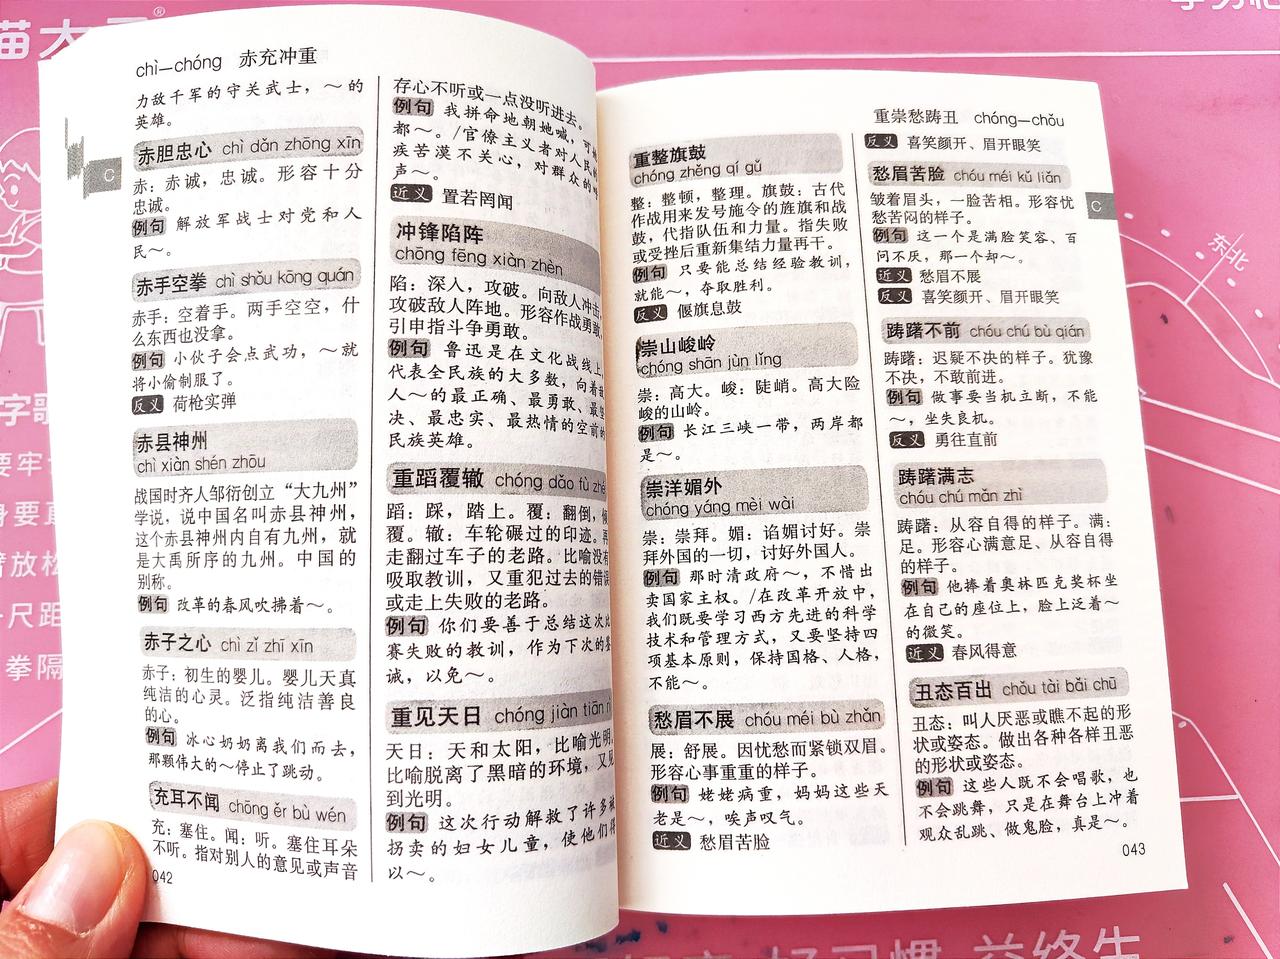 chì—chóng 赤充冲重
力敌千军的守关武士，～的
英雄。
赤胆忠心 chì dǎn zhōng xīn
赤：赤诚，忠诚。形容十分
忠诚。
例句 解放军战士对党和人
民～。
赤手空拳 chì shǒu kōng quán
赤手：空着手。两手空空，什
么东西也没拿。
例句 小伙子会点武功，～就
将小偷制服了。
反义 荷枪实弹
赤县神州
chì xiàn shén zhōu
战国时齐人邹衍创立“大九州”
学说，说中国名叫赤县神州，
这个赤县神州内自有九州，就
是大禹所序的九州。中国的
别称。
例句 改革的春风吹拂着～。
赤子之心 chì zǐ zhī xīn
赤子：初生的婴儿。婴儿天真
纯洁的心灵。泛指纯洁善良
的心。
例句 冰心奶奶离我们而去，
那颗伟大的～停止了跳动。
充耳不闻 chōng ěr bù wén
充：塞住。闻：听。塞住耳朵
不听。指对别人的意见或声音
042
C
存心不听或一点没听进去。
例句 我拼命地朝她喊，可
都～。/官僚主义者对人民的
疾苦漠不关心，对群众的呼
声～。
近义 置若罔闻
冲锋陷阵
chōng fēng xiàn zhèn
陷：深入，攻破。向敌人冲击，
攻破敌人阵地。形容作战勇敢，
引申指斗争勇敢。
例句 鲁迅是在文化战线上，
代表全民族的大多数，向着敌
人～的最正确、最勇敢、最坚
决、最忠实、最热情的空前的
民族英雄。
重蹈覆辙 chóng dǎo fù zhé
蹈：踩，踏上。覆：翻倒，倾
覆。辙：车轮碾过的印迹。再
走翻过车子的老路。比喻没有
吸取教训，又重犯过去的错误
或走上失败的老路。
例句 你们要善于总结这次比
赛失败的教训，作为下次的鉴
诫，以免～。
重见天日 chóng jiàn tiān rì
天日：天和太阳，比喻光明。
比喻脱离了黑暗的环境，又见
到光明。
例句 这次行动解救了许多被
拐卖的妇女儿童，使他们得
以～。
重崇愁踌丑 chóng—chǒu
重整旗鼓
chóng zhěng qí gǔ
整：整顿，整理。旗鼓：古代
作战用来发号施令的旌旗和战
鼓，代指队伍和力量。指失败
或受挫后重新集结力量再干。
例句 只要能总结经验教训，
就能～，夺取胜利。
反义 偃旗息鼓
崇山峻岭
chóng shān jùn lǐng
崇：高大。峻：陡峭。高大险
峻的山岭。
例句 长江三峡一带，两岸都
是～。
崇洋媚外
chóng yáng mèi wài
崇：崇拜。媚：谄媚讨好。崇
拜外国的一切，讨好外国人。
例句 那时清政府～，不惜出
卖国家主权。/在改革开放中，
我们既要学习西方先进的科学
技术和管理方式，又要坚持四
项基本原则，保持国格、人格，
不能～。
愁眉不展 chóu méi bù zhǎn
展：舒展。因忧愁而紧锁双眉。
形容心事重重的样子。
例句 姥姥病重，妈妈这些天
老是～，唉声叹气。
近义 愁眉苦脸
反义 喜笑颜开、眉开眼笑
愁眉苦脸 chóu méi kǔ liǎn
皱着眉头，一脸苦相。形容忧
愁苦闷的样子。
例句 这一个是满脸笑容、百
问不厌，那一个却～。
近义 愁眉不展
反义 喜笑颜开、眉开眼笑
踌躇不前 chóu chú bù qián
踌躇：迟疑不决的样子。犹豫
不决，不敢前进。
例句 做事要当机立断，不能
～，坐失良机。
反义 勇往直前
踌躇满志
chóu chú mǎn zhì
踌躇：从容自得的样子。满：
足。形容心满意足、从容自得
的样子。
例句 他捧着奥林匹克奖杯坐
在自己的座位上，脸上泛着～
的微笑。
近义 春风得意
丑态百出 chǒu tài bǎi chū
丑态：叫人厌恶或瞧不起的形
状或姿态。做出各种各样丑恶
的形状或姿态。
例句 这些人既不会唱歌，也
不会跳舞，只是在舞台上冲着
观众乱跳、做鬼脸，真是～。
043
C
东北
猫大
字歌